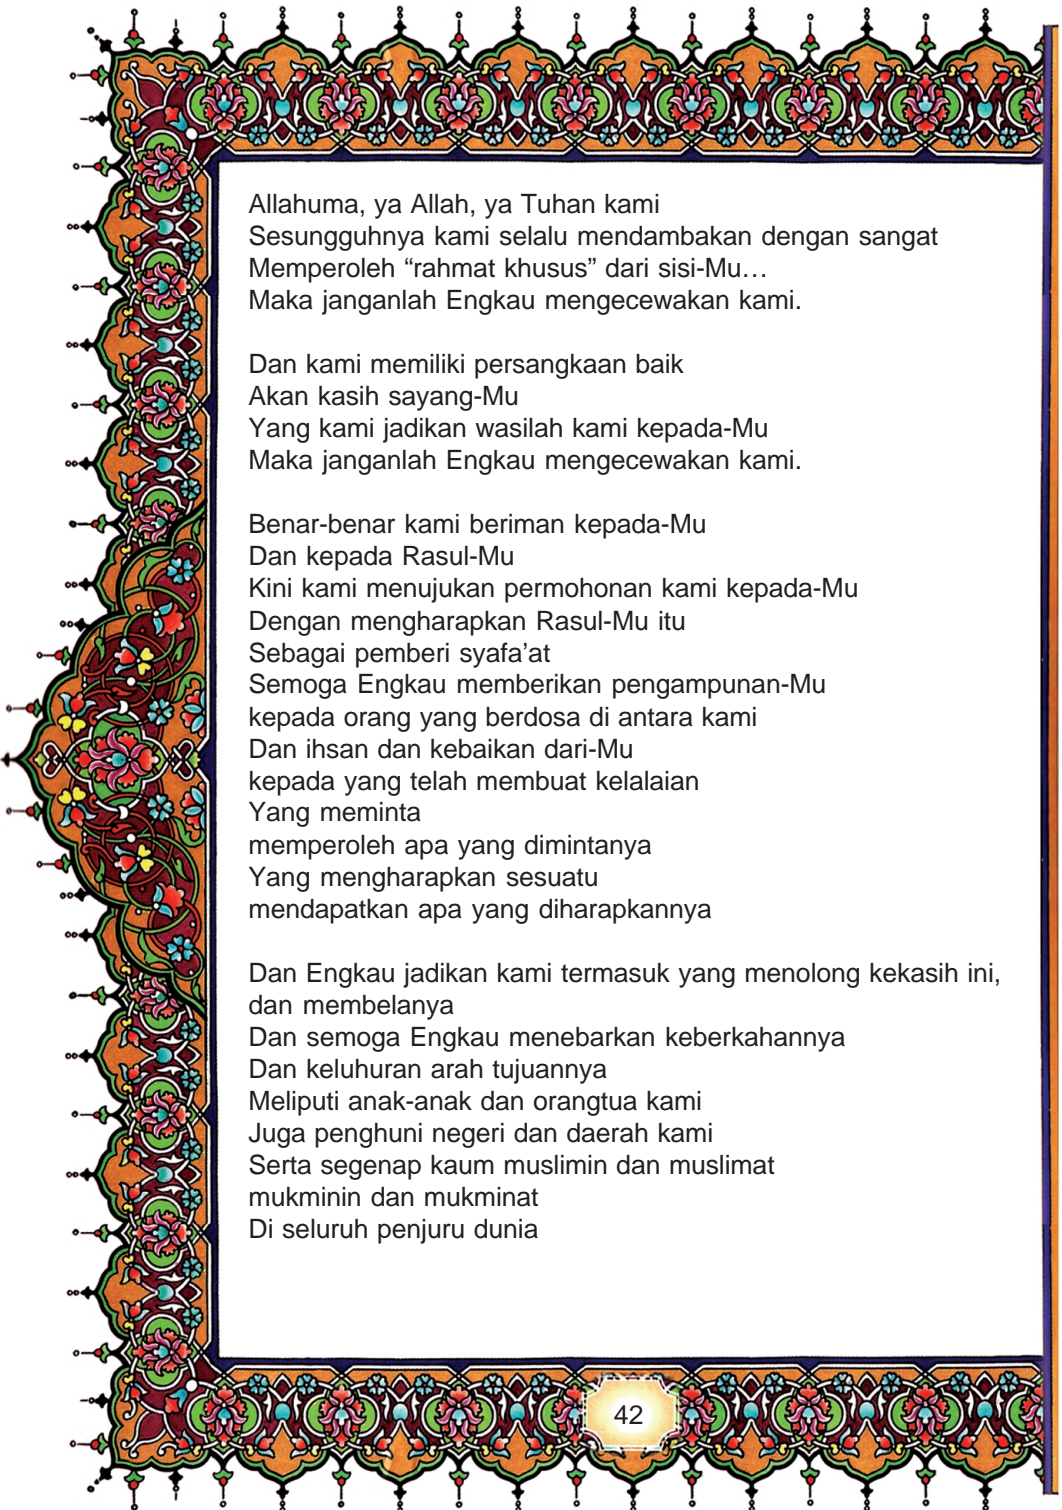 Allahuma, ya Allah, ya Tuhan kami
Sesungguhnya kami selalu mendambakan dengan sangat
Memperoleh “rahmat khusus” dari sisi-Mu…
Maka janganlah Engkau mengecewakan kami.
Dan kami memiliki persangkaan baik
Akan kasih sayang-Mu
Yang kami jadikan wasilah kami kepada-Mu
Maka janganlah Engkau mengecewakan kami.
Benar-benar kami beriman kepada-Mu
Dan kepada Rasul-Mu
Kini kami menujukan permohonan kami kepada-Mu
Dengan mengharapkan Rasul-Mu itu
Sebagai pemberi syafa’at
Semoga Engkau memberikan pengampunan-Mu
kepada orang yang berdosa di antara kami
Dan ihsan dan kebaikan dari-Mu
kepada yang telah membuat kelalaian
Yang meminta
memperoleh apa yang dimintanya
Yang mengharapkan sesuatu
mendapatkan apa yang diharapkannya
Dan Engkau jadikan kami termasuk yang menolong kekasih ini,
dan membelanya
Dan semoga Engkau menebarkan keberkahannya
Dan keluhuran arah tujuannya
Meliputi anak-anak dan orangtua kami
Juga penghuni negeri dan daerah kami
Serta segenap kaum muslimin dan muslimat
mukminin dan mukminat
Di seluruh penjuru dunia
42